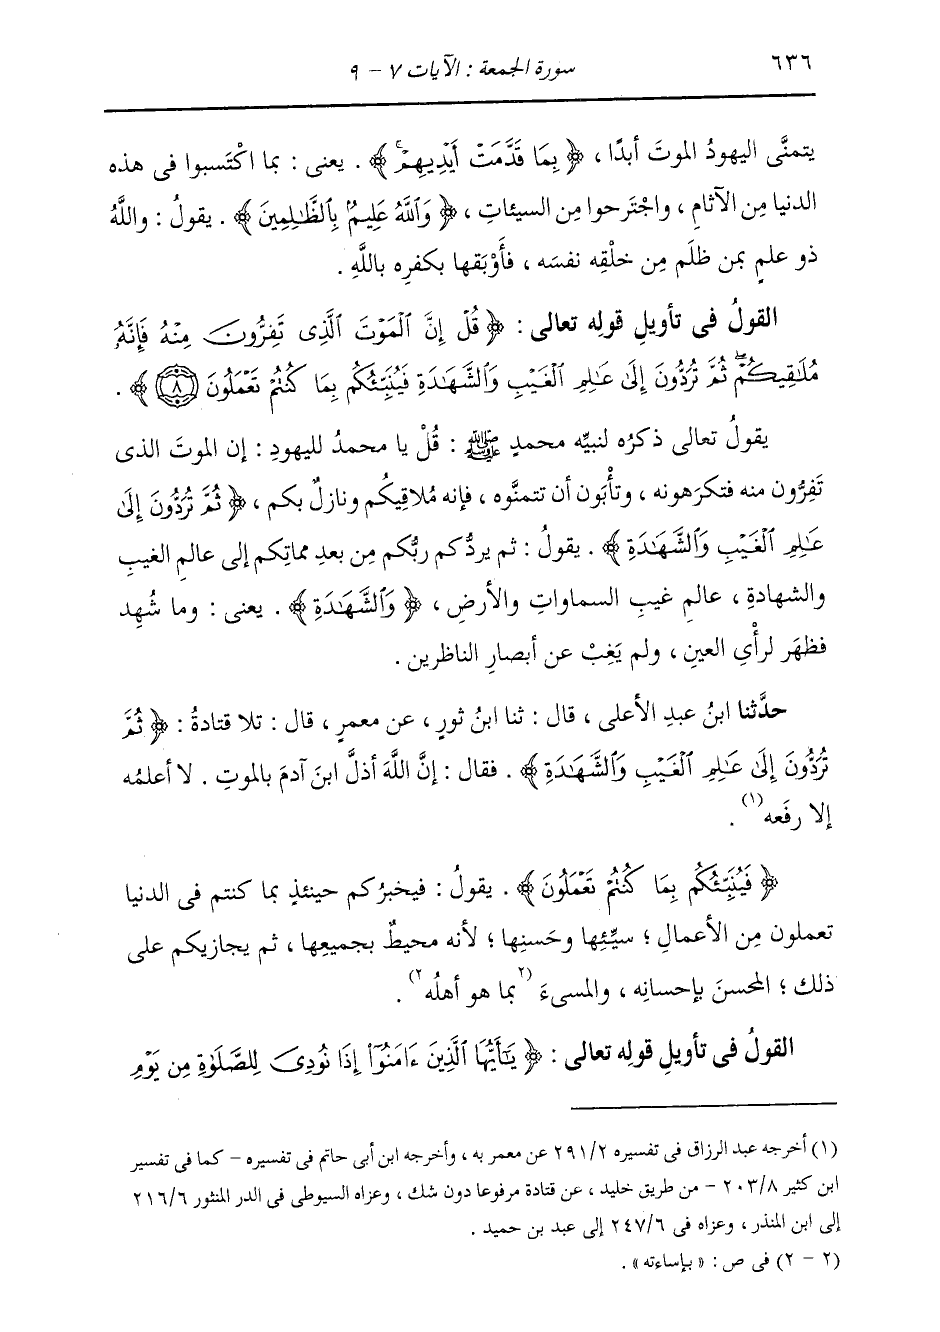 ٦٣٦
سورة الجمعة : الآيات ٧ - ٩
يتمنَّى اليهودُ الموتَ أبدًا ، ﴿ بِمَا قَدَّمَتْ أَيْدِيهِمْۚ ﴾ . يعنى : بما اكْتَسبوا فى هذه
الدنيا مِن الآثامِ ، واجْتَرحوا مِن السيئاتِ ، ﴿ وَٱللَّهُ عَلِيمٌۢ بِٱلظَّـٰلِمِينَ ﴾ . يقولُ : واللَّهُ
ذو علمٍ بمن ظلَم مِن خلْقِه نفسَه ، فأَوْبَقها بكفرِه باللَّهِ .
القولُ فى تأويلِ قولِه تعالى : ﴿ قُلْ إِنَّ ٱلْمَوْتَ ٱلَّذِى تَفِرُّونَ مِنْهُ فَإِنَّهُۥ
مُلَـٰقِيكُمْۖ ثُمَّ تُرَدُّونَ إِلَىٰ عَـٰلِمِ ٱلْغَيْبِ وَٱلشَّهَـٰدَةِ فَيُنَبِّئُكُم بِمَا كُنتُمْ تَعْمَلُونَ ٨ ﴾ .
يقولُ تعالى ذكرُه لنبيِّه محمدٍ ﷺ : قُلْ يا محمدُ لليهودِ : إن الموتَ الذى
تَفِرُّون منه فتكرَهونه ، وتأْبَون أن تتمنَّوه ، فإنه مُلاقِيكُم ونازلٌ بكم ، ﴿ ثُمَّ تُرَدُّونَ إِلَىٰ
عَـٰلِمِ ٱلْغَيْبِ وَٱلشَّهَـٰدَةِ ﴾ . يقولُ : ثم يردُّكم ربُّكم مِن بعدِ مماتِكم إلى عالمِ الغيبِ
والشهادةِ ، عالمِ غيبِ السماواتِ والأرضِ ، ﴿ وَٱلشَّهَـٰدَةِ ﴾ . يعنى : وما شُهِد
فظهَر لرأْىِ العينِ ، ولم يَغِبْ عن أبصارِ الناظرين .
حدَّثنا ابنُ عبدِ الأعلى ، قال : ثنا ابنُ ثورٍ ، عن معمرٍ ، قال : تلا قتادةُ : ﴿ ثُمَّ
تُرَدُّونَ إِلَىٰ عَـٰلِمِ ٱلْغَيْبِ وَٱلشَّهَـٰدَةِ ﴾ . فقال : إنَّ اللَّهَ أذلَّ ابنَ آدمَ بالموتِ . لا أعلمُه
إلا رفَعه(١) .
﴿ فَيُنَبِّئُكُم بِمَا كُنتُمْ تَعْمَلُونَ ﴾ . يقولُ : فيخبرُكم حينئذٍ بما كنتم فى الدنيا
تعملون مِن الأعمالِ ؛ سيِّئِها وحَسنِها ؛ لأنه محيطٌ بجميعِها ، ثم يجازيكم على
ذلك ؛ المحسنَ بإحسانِه ، والمسىءَ (٢بما هو أهلُه٢) .
القولُ فى تأويلِ قولِه تعالى : ﴿ يَـٰٓأَيُّهَا ٱلَّذِينَ ءَامَنُوٓا۟ إِذَا نُودِىَ لِلصَّلَوٰةِ مِن يَوْمِ
(١) أخرجه عبد الرزاق فى تفسيره ٢٩١/٢ عن معمر به ، وأخرجه ابن أبى حاتم فى تفسيره - كما فى تفسير
ابن كثير ٢٠٣/٨ - من طريق خليد ، عن قتادة مرفوعا دون شك ، وعزاه السيوطى فى الدر المنثور ٢١٦/٦
إلى ابن المنذر ، وعزاه فى ٢٤٧/٦ إلى عبد بن حميد .
(٢ - ٢) فى ص : « بإساءته » .